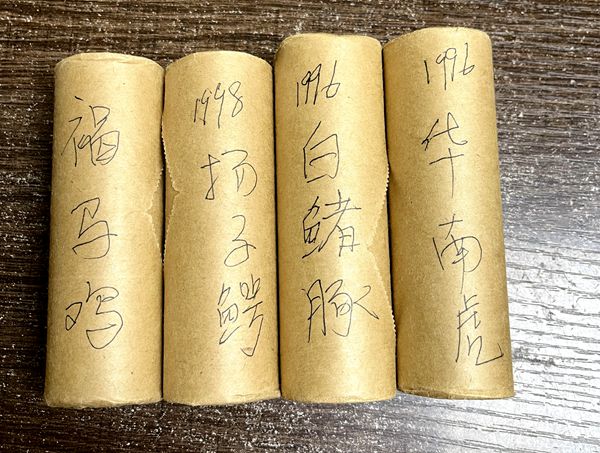 褐马鸡
1998
扬子鳄
1996
白鳍豚
1996
华南虎